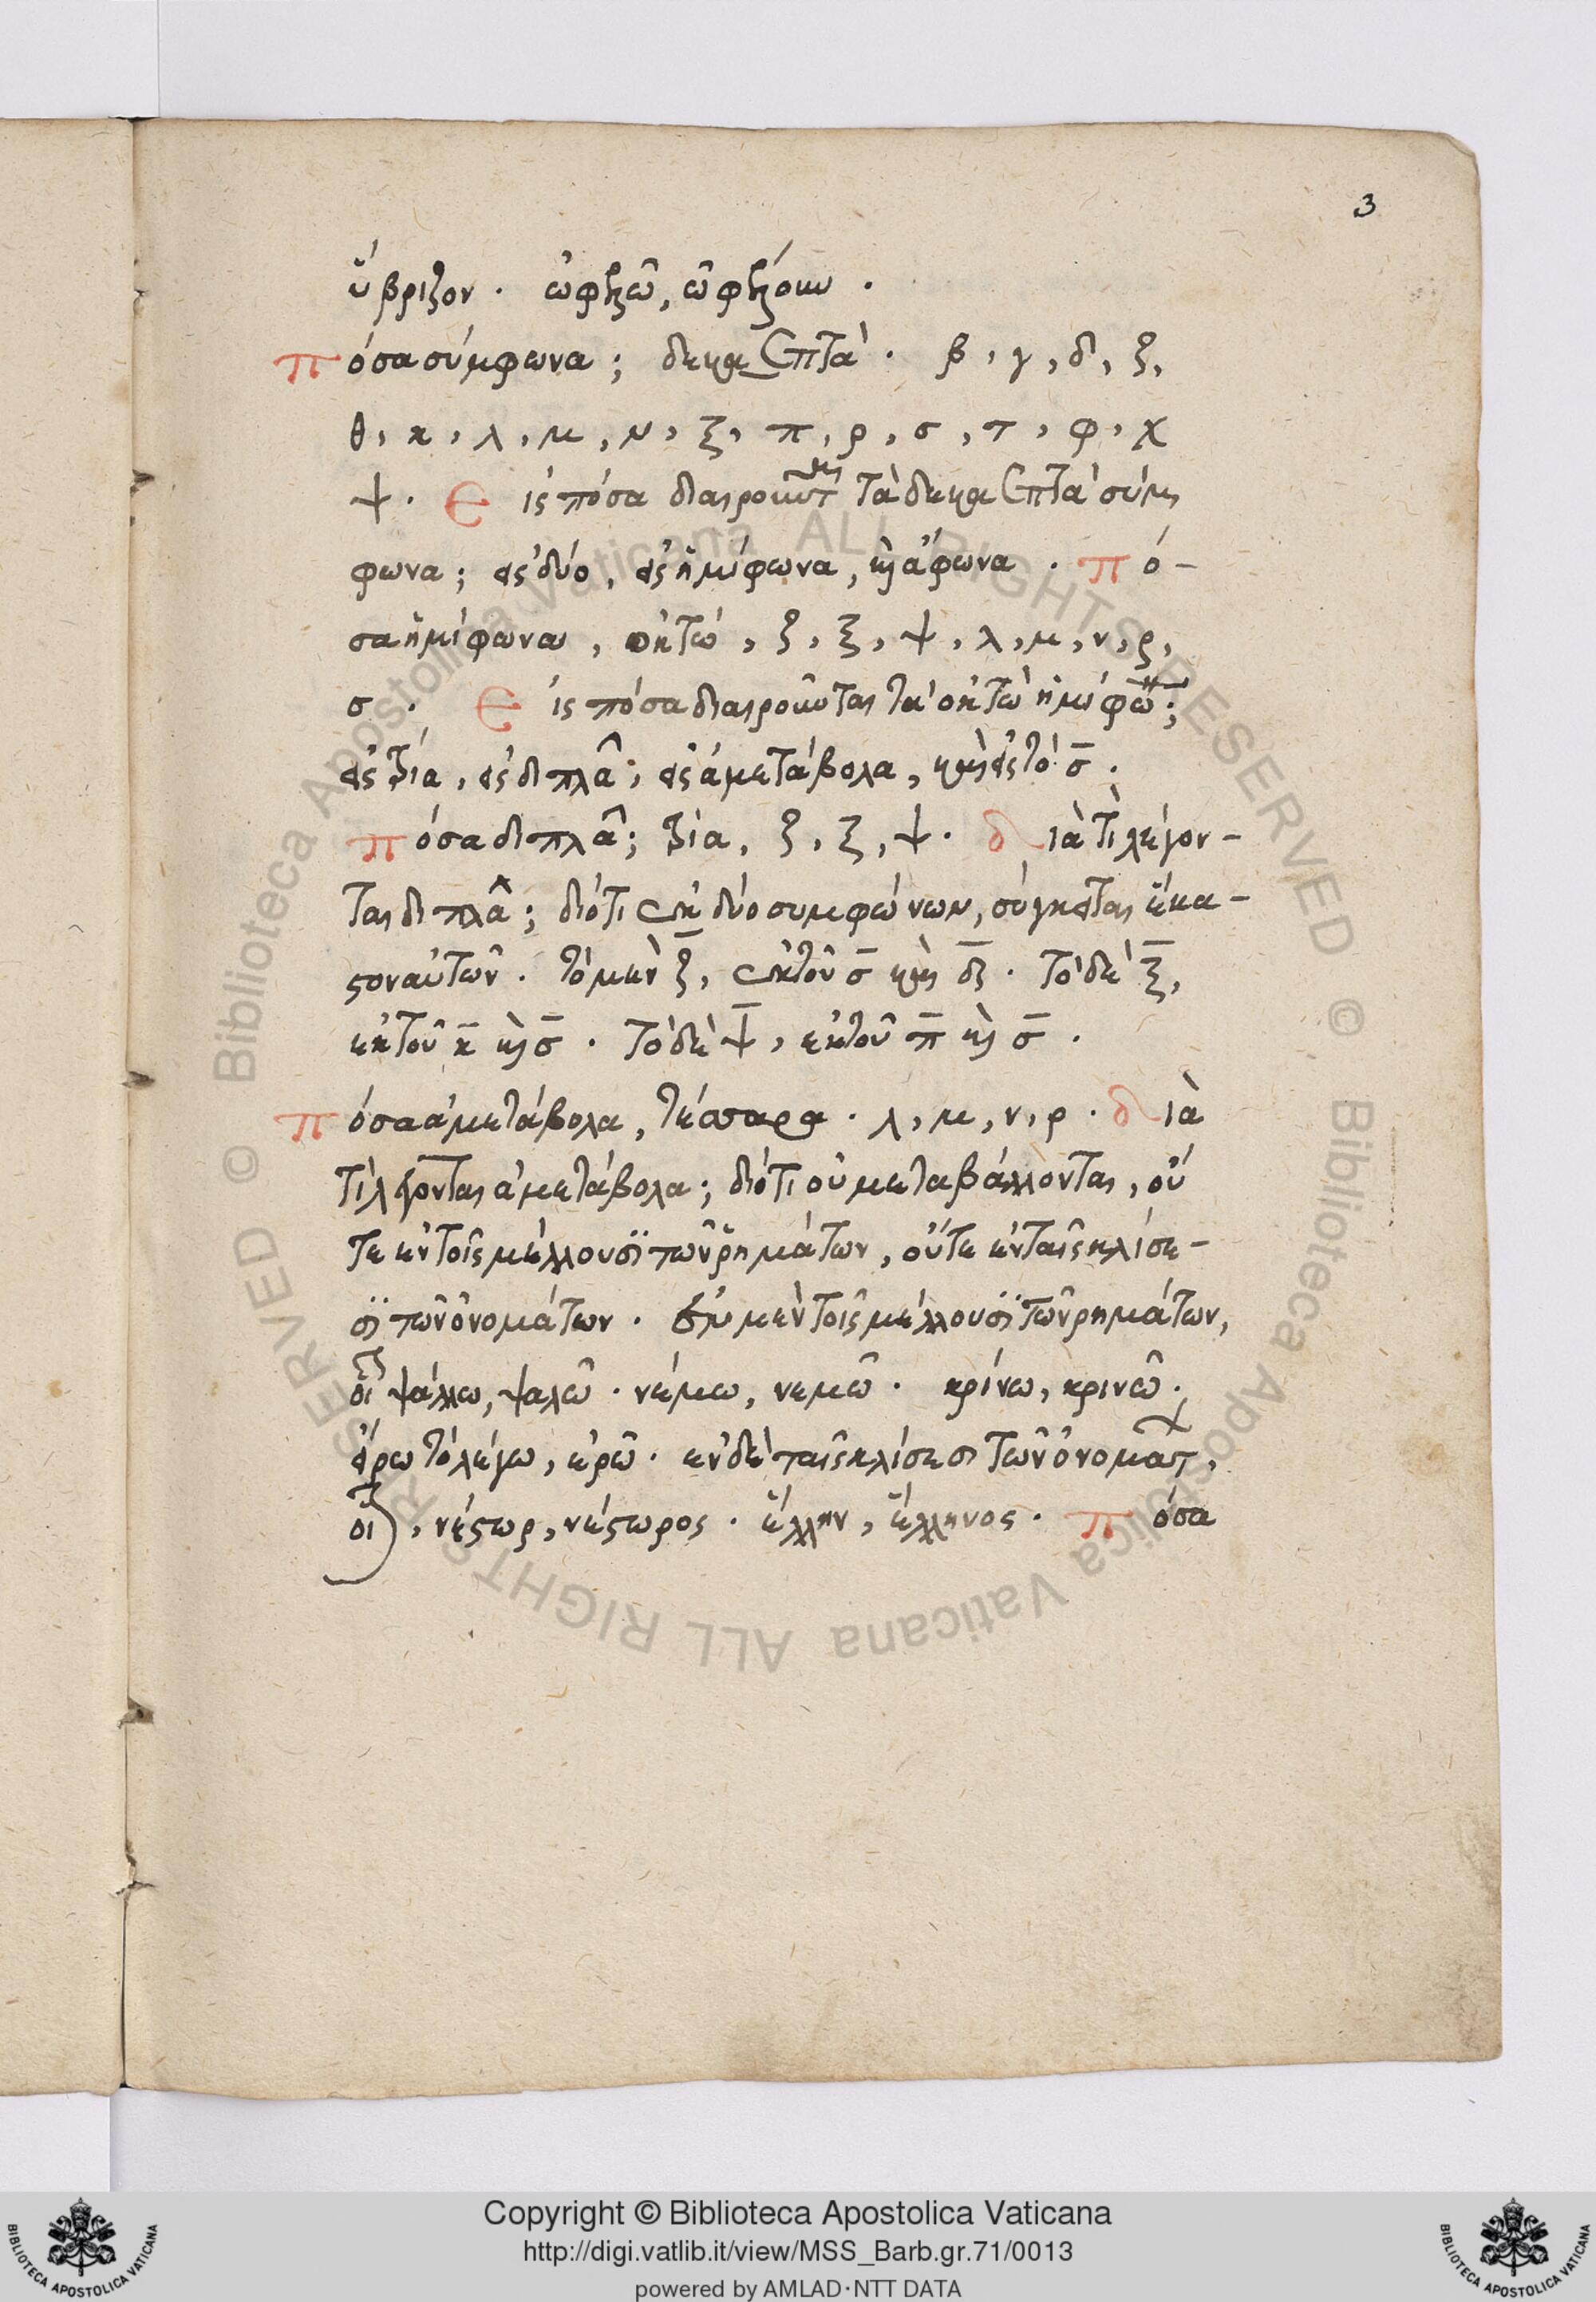 3
ὕβριζον. ὠφελῶ, ὠφέλουν.
πόσα σύμφωνα; δεκαεπτά. β, γ, δ, ζ,
θ, κ, λ, μ, ν, ξ, π, ρ, σ, τ, φ, χ
ψ. εἰς πόσα διαιροῦνται τὰ δεκαεπτὰ σύμ
φωνα; εἰς δύο, εἰς ἡμίφωνα, καὶ ἄφωνα. πό-
σα ἡμίφωνα, ὀκτώ, ζ, ξ, ψ, λ, μ, ν, ρ,
σ. εἰς πόσα διαιροῦνται τὰ ὀκτὼ ἡμίφω;
εἰς τρία, εἰς διπλᾶ, εἰς ἀμετάβολα, καὶ εἰς τὸ σ̅.
πόσα διπλᾶ; τρία, ζ, ξ, ψ. διὰ τί λέγον-
ται διπλᾶ; διότι ἐκ δύο συμφώνων, σύγκειται ἕκα-
στον αὐτῶν. τὸ μὲν ζ̅, ἐκ τοῦ σ̅ καὶ δ̅. τὸ δὲ ξ̅,
ἐκ τοῦ κ̅ καὶ σ̅. τὸ δὲ ψ̅, ἐκ τοῦ π̅ καὶ σ̅.
πόσα ἀμετάβολα, τέσσαρα. λ, μ, ν, ρ. διὰ
τί λέγονται ἀμετάβολα; διότι οὐ μεταβάλλονται, οὔ
τε ἐν τοῖς μέλλουσϊ τῶν ῥημάτων, οὔτε ἐν ταῖς κλίσε-
σϊ τῶν ὀνομάτων. ἐν μὲν τοῖς μέλλουσϊ τῶν ῥημάτων,
οἷ ψάλλω, ψαλῶ. νέμω, νεμῶ. κρίνω, κρινῶ.
εἴρω τὸ λέγω, ἐρῶ. ἐν δὲ ταῖς κλίσεσι τῶν ὀνομάτ,
οἷ, νέστωρ, νέστωρος. ἕλλην, ἕλληνος. πόσα
© Biblioteca Apostolica Vaticana ALL RIGHTS RESERVED © Biblioteca Apostolica Vaticana ALL RIGHTS RESERVED
Copyright © Biblioteca Apostolica Vaticana
http://digi.vatlib.it/view/MSS_Barb.gr.71/0013
powered by AMLAD·NTT DATA
BIBLIOTECA APOSTOLICA VATICANA
BIBLIOTECA APOSTOLICA VATICANA